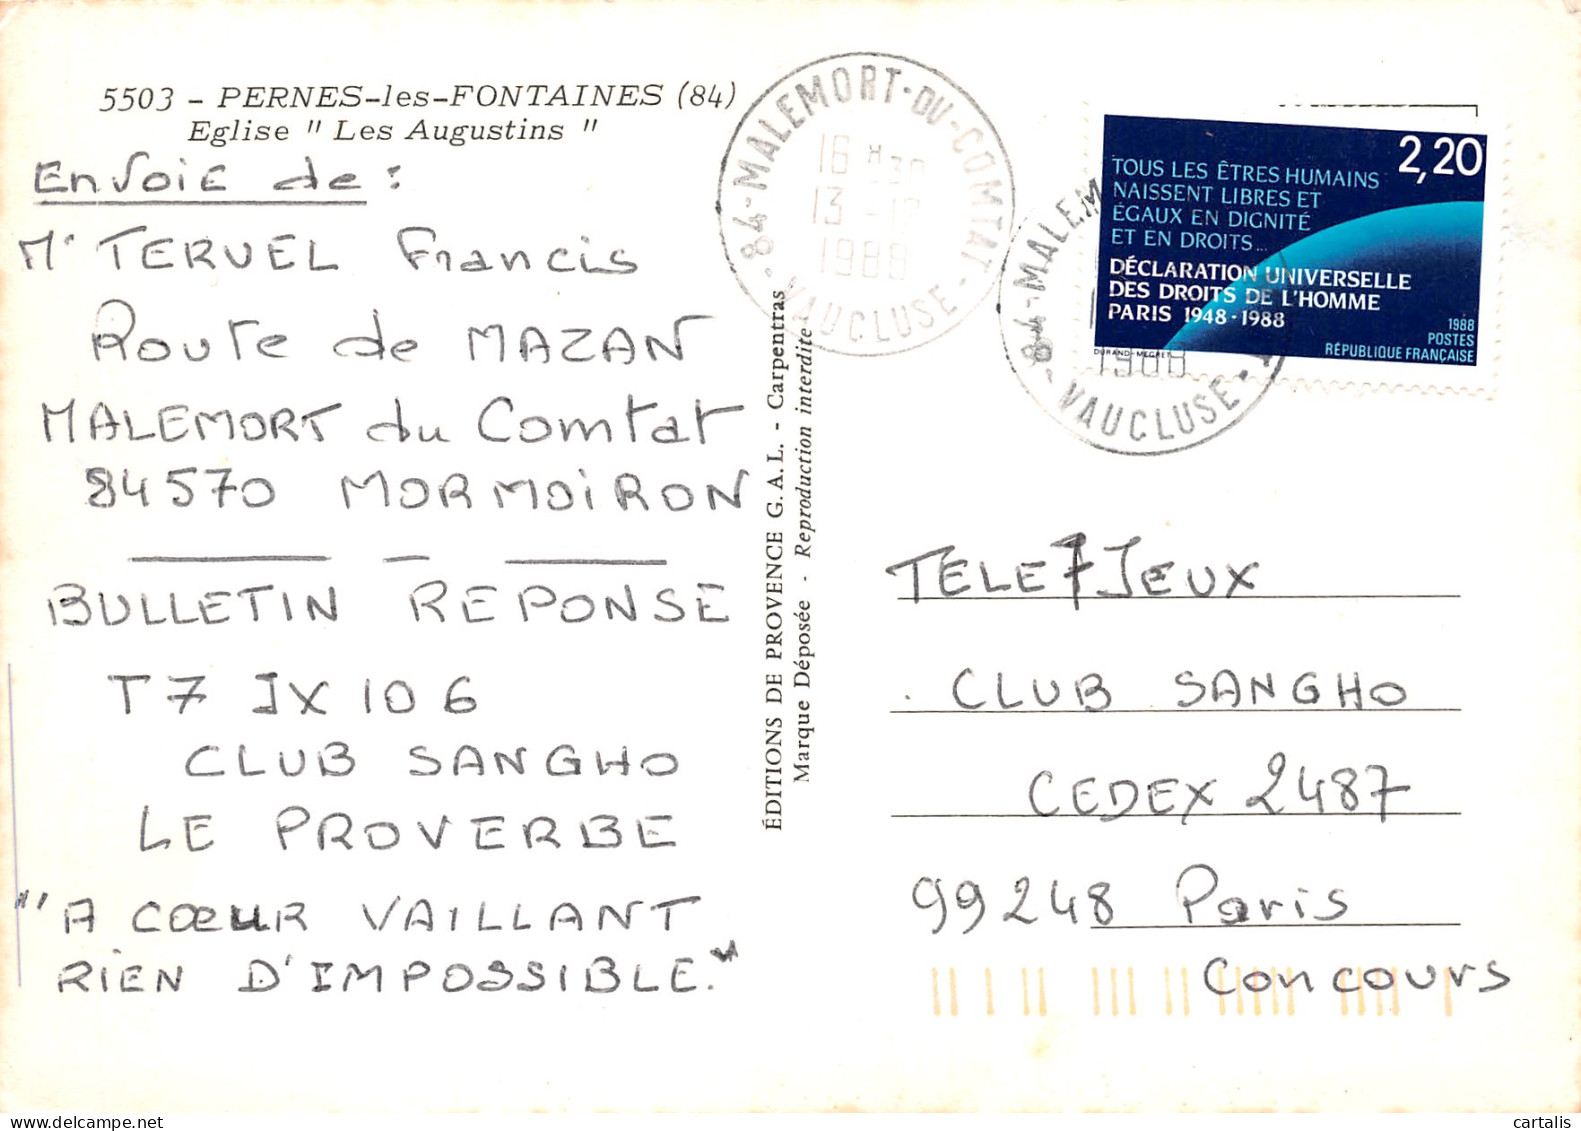 5503 - PERNES-les-FONTAINES (84)
Eglise " Les Augustins "
Envoie de :
Mr TERUEL Francis
Route de MAZAN
MALEMORT du Comtat
84570 MORMOIRON
BULLETIN REPONSE
T7 JX 106
CLUB SANGHO
LE PROVERBE
"A CŒUR VAILLANT
RIEN D'IMPOSSIBLE."
ÉDITIONS DE PROVENCE G.A.L. - Carpentras
Marque Déposée - Reproduction interdite
84-MALEMORT-DU-COMTAT
16 H 30
13 -12
1988
VAUCLUSE
84-MALEM
1988
VAUCLUSE
2,20
TOUS LES ÊTRES HUMAINS
NAISSENT LIBRES ET
ÉGAUX EN DIGNITÉ
ET EN DROITS...
DÉCLARATION UNIVERSELLE
DES DROITS DE L'HOMME
PARIS 1948-1988
1988
POSTES
RÉPUBLIQUE FRANÇAISE
DURAND-MEGRET
TELE 7 JEUX
CLUB SANGHO
CEDEX 2487
99248 Paris
Concours
cartalis